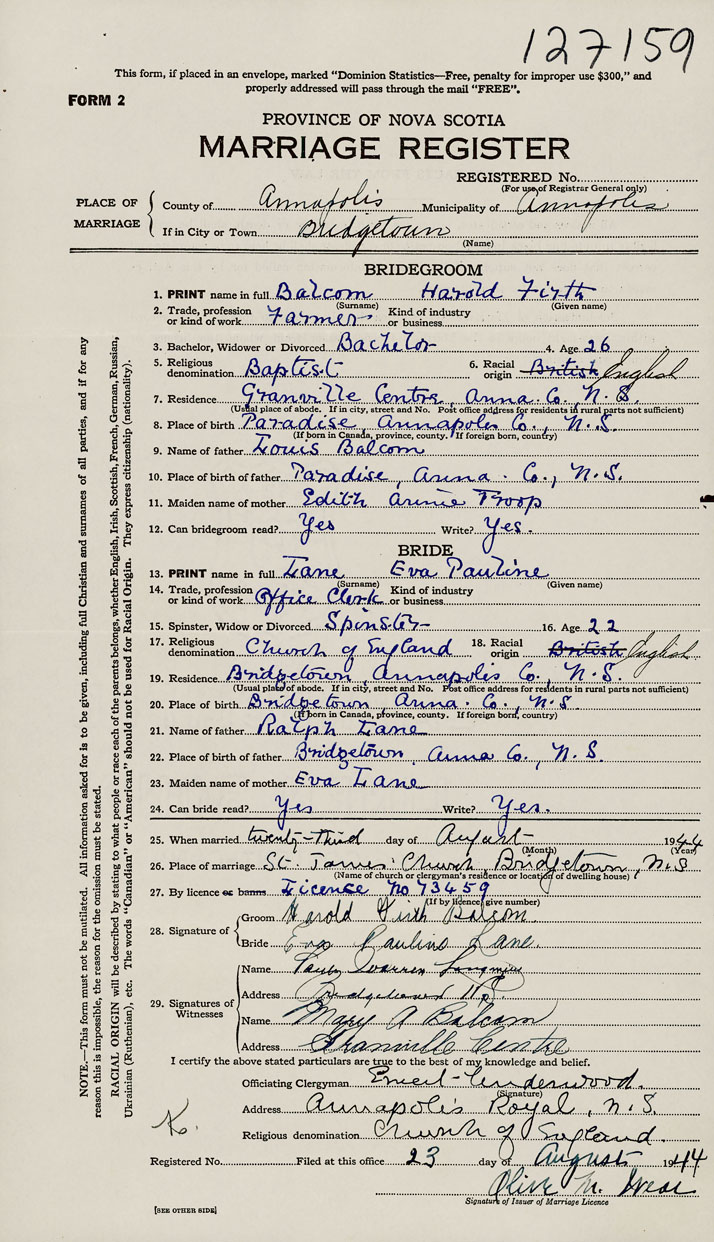 127159
This form, if placed in an envelope, marked "Dominion Statistics—Free, penalty for improper use $300," and
properly addressed will pass through the mail "FREE".
FORM 2
PROVINCE OF NOVA SCOTIA
MARRIAGE REGISTER
REGISTERED No.
(For use of Registrar General only)
PLACE OF MARRIAGE
County of Annapolis Municipality of Annapolis
If in City or Town Bridgetown
(Name)
BRIDEGROOM
1. PRINT name in full Balcom Harold Firth
(Surname) (Given name)
2. Trade, profession or kind of work Farmer Kind of industry or business
3. Bachelor, Widower or Divorced Bachelor 4. Age 26
5. Religious denomination Baptist 6. Racial origin British English
7. Residence Granville Centre, Anna Co. N.S.
(Usual place of abode. If in city, street and No. Post office address for residents in rural parts not sufficient)
8. Place of birth Paradise, Annapolis Co., N.S.
(If born in Canada, province, county. If foreign born, country)
9. Name of father Louis Balcom
10. Place of birth of father Paradise, Anna. Co., N.S.
11. Maiden name of mother Edith Annie Troop
12. Can bridegroom read? Yes Write? Yes.
BRIDE
13. PRINT name in full Lane Eva Pauline
(Surname) (Given name)
14. Trade, profession or kind of work Office Clerk Kind of industry or business
15. Spinster, Widow or Divorced Spinster 16. Age 22
17. Religious denomination Church of England 18. Racial origin British English
19. Residence Bridgetown, Annapolis Co., N.S.
(Usual place of abode. If in city, street and No. Post office address for residents in rural parts not sufficient)
20. Place of birth Bridgetown, Anna. Co., N.S.
(If born in Canada, province, county. If foreign born, country)
21. Name of father Ralph Lane
22. Place of birth of father Bridgetown, Anna Co., N.S.
23. Maiden name of mother Eva Lane
24. Can bride read? Yes Write? Yes.
25. When married twenty-third day of August 1944
(Month) (Year)
26. Place of marriage St. James' Church, Bridgetown, N.S
(Name of church or clergyman's residence or location of dwelling house)
27. By licence or banns License No 73459
(If by licence, give number)
28. Signature of
Groom Harold Firth Balcom.
Bride Eva Pauline Lane.
29. Signatures of Witnesses
Name Warren
Address Bridgetown N.S.
Name Mary A Balcom
Address Granville Centre
I certify the above stated particulars are true to the best of my knowledge and belief.
Officiating Clergyman Ernest Underwood.
(Signature)
Address Annapolis Royal, N.S.
Religious denomination Church of England.
K.
Registered No. Filed at this office 23 day of August 1944
Olive M.
Signature of Issuer of Marriage Licence
[SEE OTHER SIDE]
NOTE.—This form must not be mutilated. All information asked for is to be given, including full Christian and surnames of all parties, and if for any
reason this is impossible, the reason for the omission must be stated.
RACIAL ORIGIN will be described by stating to what people or race each of the parents belongs, whether English, Irish, Scottish, French, German, Russian,
Ukrainian (Ruthenian), etc. The words "Canadian" or "American" should not be used for Racial Origin. They express citizenship (nationality).